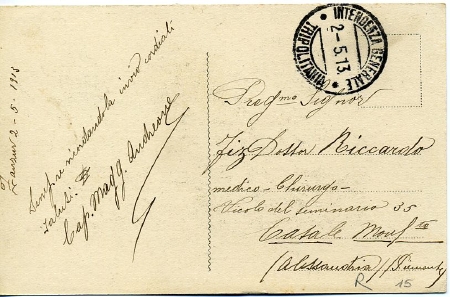 Zavzur 2-5-1913
Sempre ricordandola invio cordiali
saluti
Cap. Magg. Andreose
INTENDENZA GENERALE
2-5.13
TRIPOLITANIA
Preg.mo Signor
Fiz Dottor Riccardo
medico-Chirurgo-
Vicolo del Seminario 35
Casale Monf.to
(Alessandria) (Piemonte)
R 15